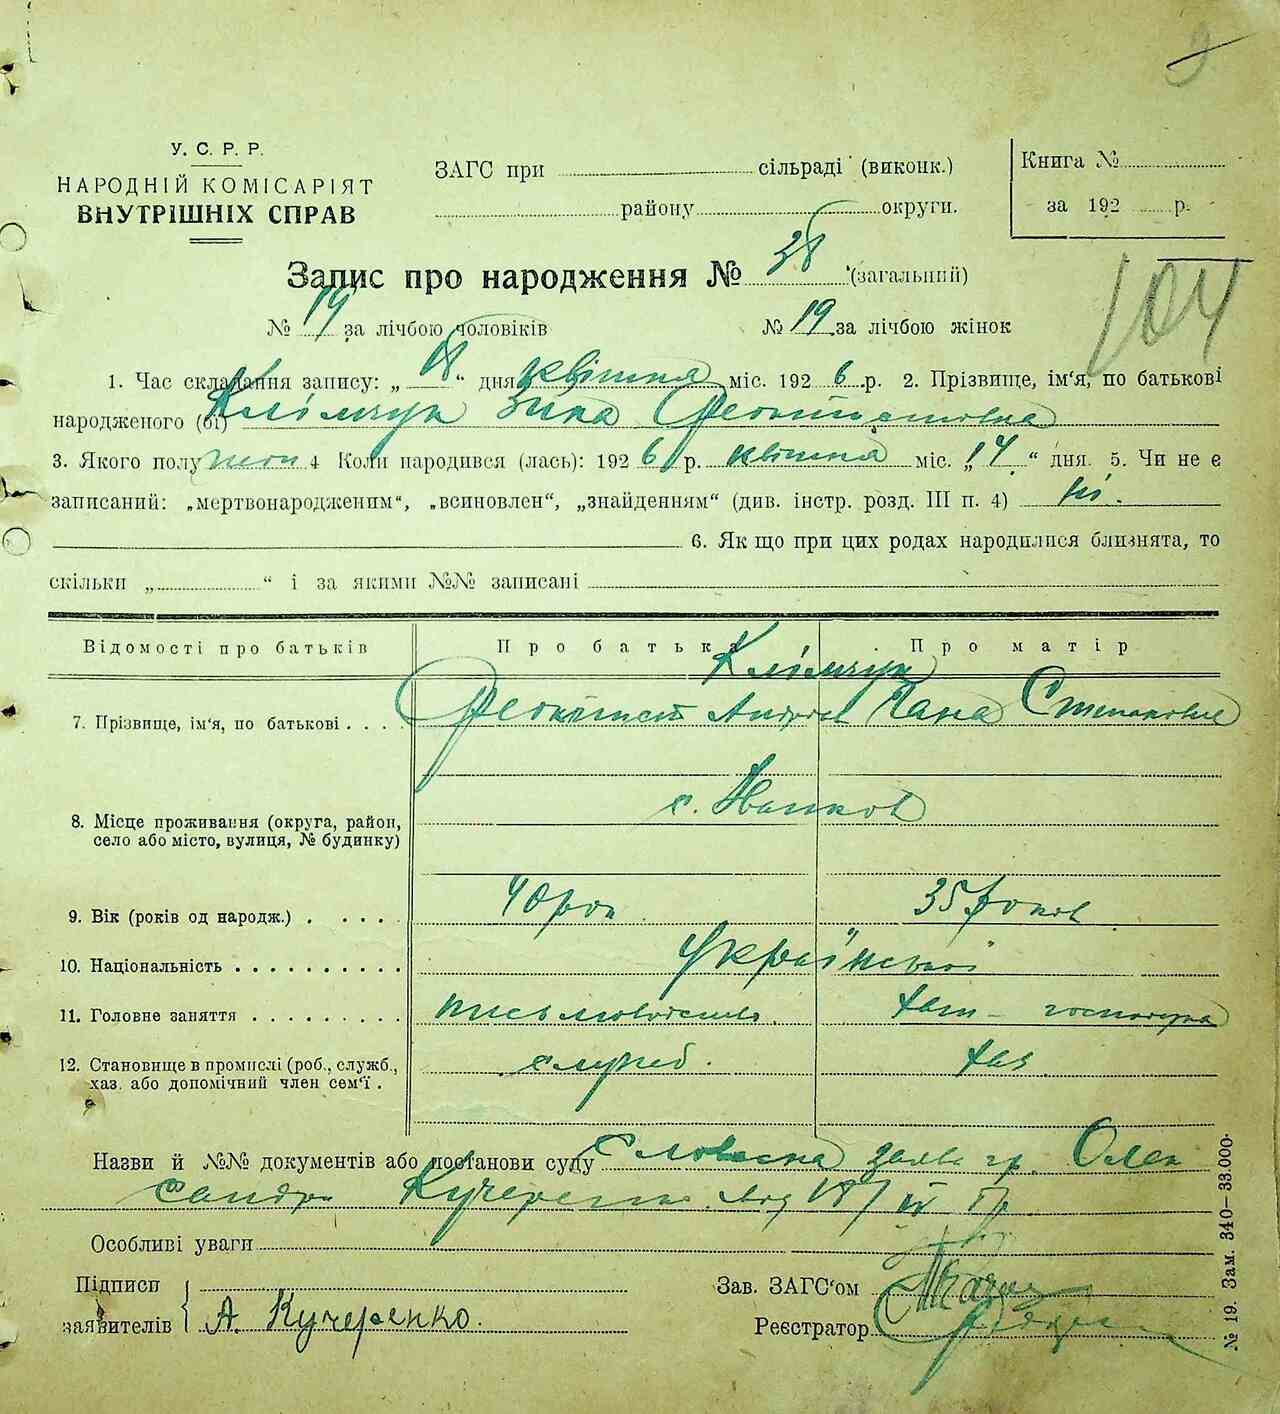 У. С. Р. Р.
НАРОДНІЙ КОМІСАРІЯТ
ВНУТРІШНІХ СПРАВ
ЗАГС при сільраді (виконк.)
району округи.
Книга №
за 192 р.
Запис про народження № 38 (загальний)
104
№ 19 за лічбою чоловіків № 19 за лічбою жінок
1. Час складання запису: „18“ дня квітня міс. 1926 р. 2. Прізвище, ім'я, по батькові
народженого (ої) Клімчук Зина Феоктистовна
3. Якого полу жін 4 Коли народився (лась): 1926 р. квітня міс. „14“ дня. 5. Чи не є
записаний: „мертвонародженим“, „всиновлен“, „знайденням“ (див. інстр. розд. III п. 4) ні.
6. Як що при цих родах народилися близнята, то
скільки „ “ і за якими №№ записані
Відомості про батьків Про батька Про матір
Клімчук
7. Прізвище, ім'я, по батькові . . . . Феоктист Андрієв Гана Степановна
8. Місце проживання (округа, район,
село або місто, вулиця, № будинку)
с.
9. Вік (років од народж.) . . . . . 40 рок 35 років
10. Національність . . . . . . . . . . Української
11. Головне заняття . . . . . . . . . хат- господарка
12. Становище в промислі (роб., служб.,
хаз. або допомічний член сем'ї .
служб. хаз
Назви й №№ документів або постанови суду Словесна заява гр. Олек
сандра Кучеренко від 18/IV
Особливі уваги
Підписи
заявителів А. Кучеренко.
Зав. ЗАГС'ом
Реєстратор
№ 19. Зам. 340—33.000